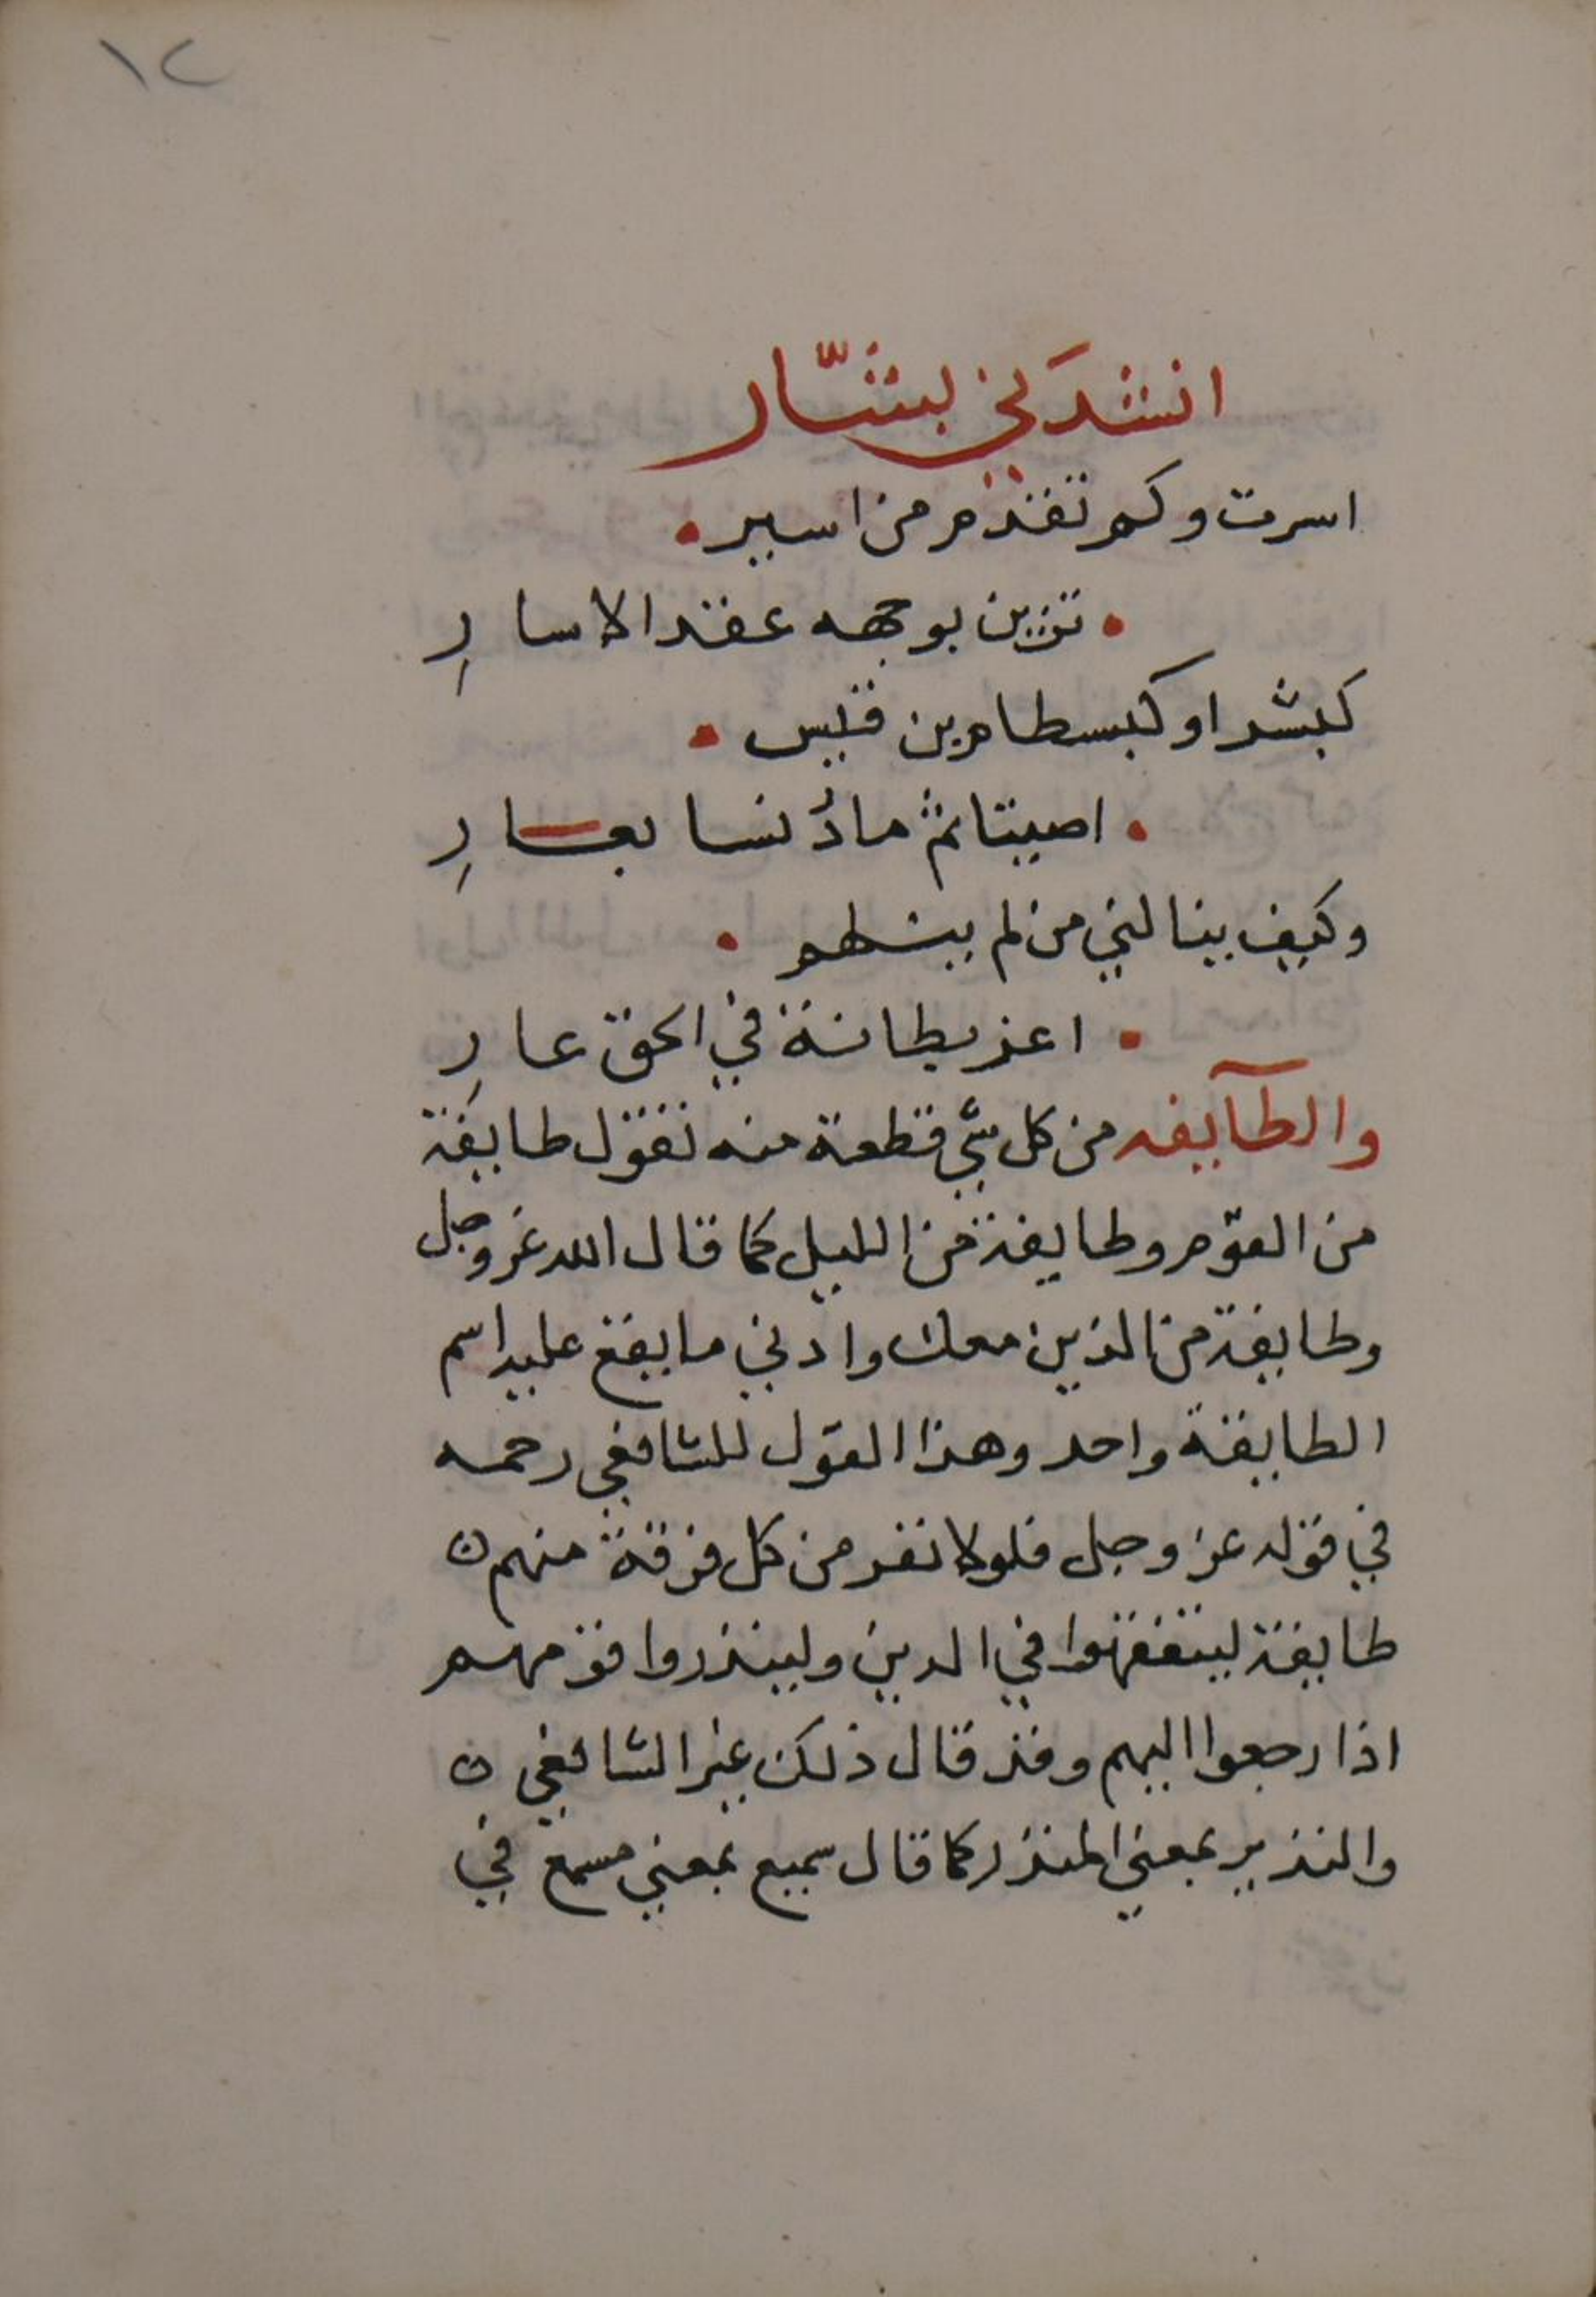 ١٢
انشدَني بشّار
اسرت وكم تقدم من اسير
تزين بوجهه عقد الاسارِ
كبشر او كبسطام بن قيس
اصيبتا ثم ما دُنسا بعارِ
وكيف ينالني من لم ينطهم
اعز بطانة في الحق عارِ
والطآيفه من كل شي قطعة منه تقول طايفة
من القوم وطايفة من الليل كما قال الله عز وجل
وطايفة من الذين معك وادني ما يقع عليه اسم
الطايفة واحد وهذا القول للشافعي رحمه
في قوله عز وجل فلولا نفر من كل فرقة منهم ن
طايفة ليتفقهوا في الدين ولينذروا قومهم
اذا رجعوا اليهم وقد قال ذلك غير الشافعي ن
والنذير بمعني المنذر كما قال سميع بمعني مسمع في